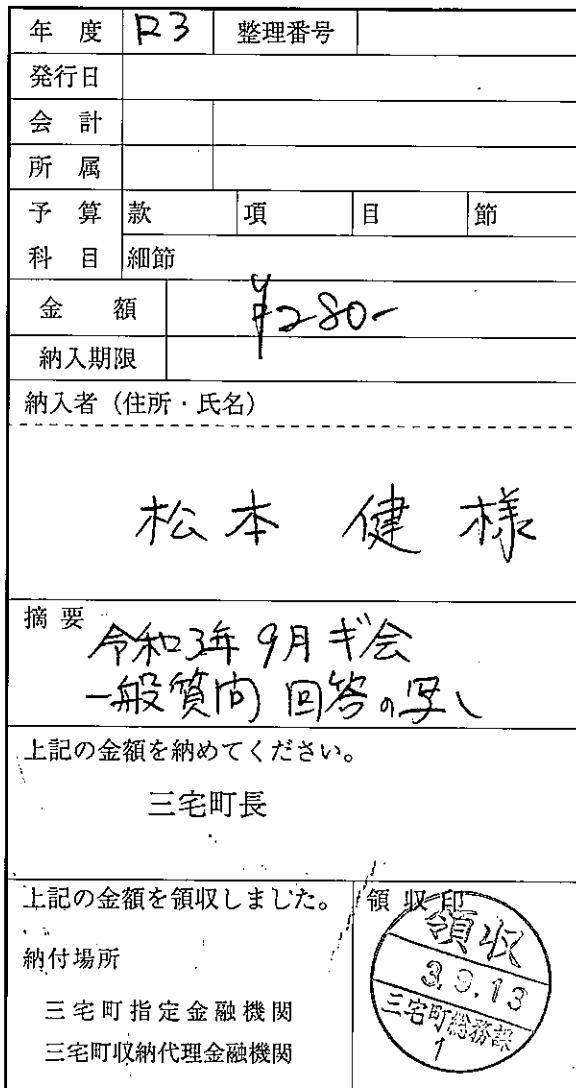 年度 R3 整理番号
発行日
会計
所属
予算 款 項 目 節
科目 細節
金額 ¥280-
納入期限
納入者（住所・氏名）
松本 健 様
摘要
令和3年9月ギ会
一般質問 回答の写し
上記の金額を納めてください。
三宅町長
上記の金額を領収しました。
納付場所
三宅町指定金融機関
三宅町収納代理金融機関
領収印
領収
3.9.13
三宅町総務課
1